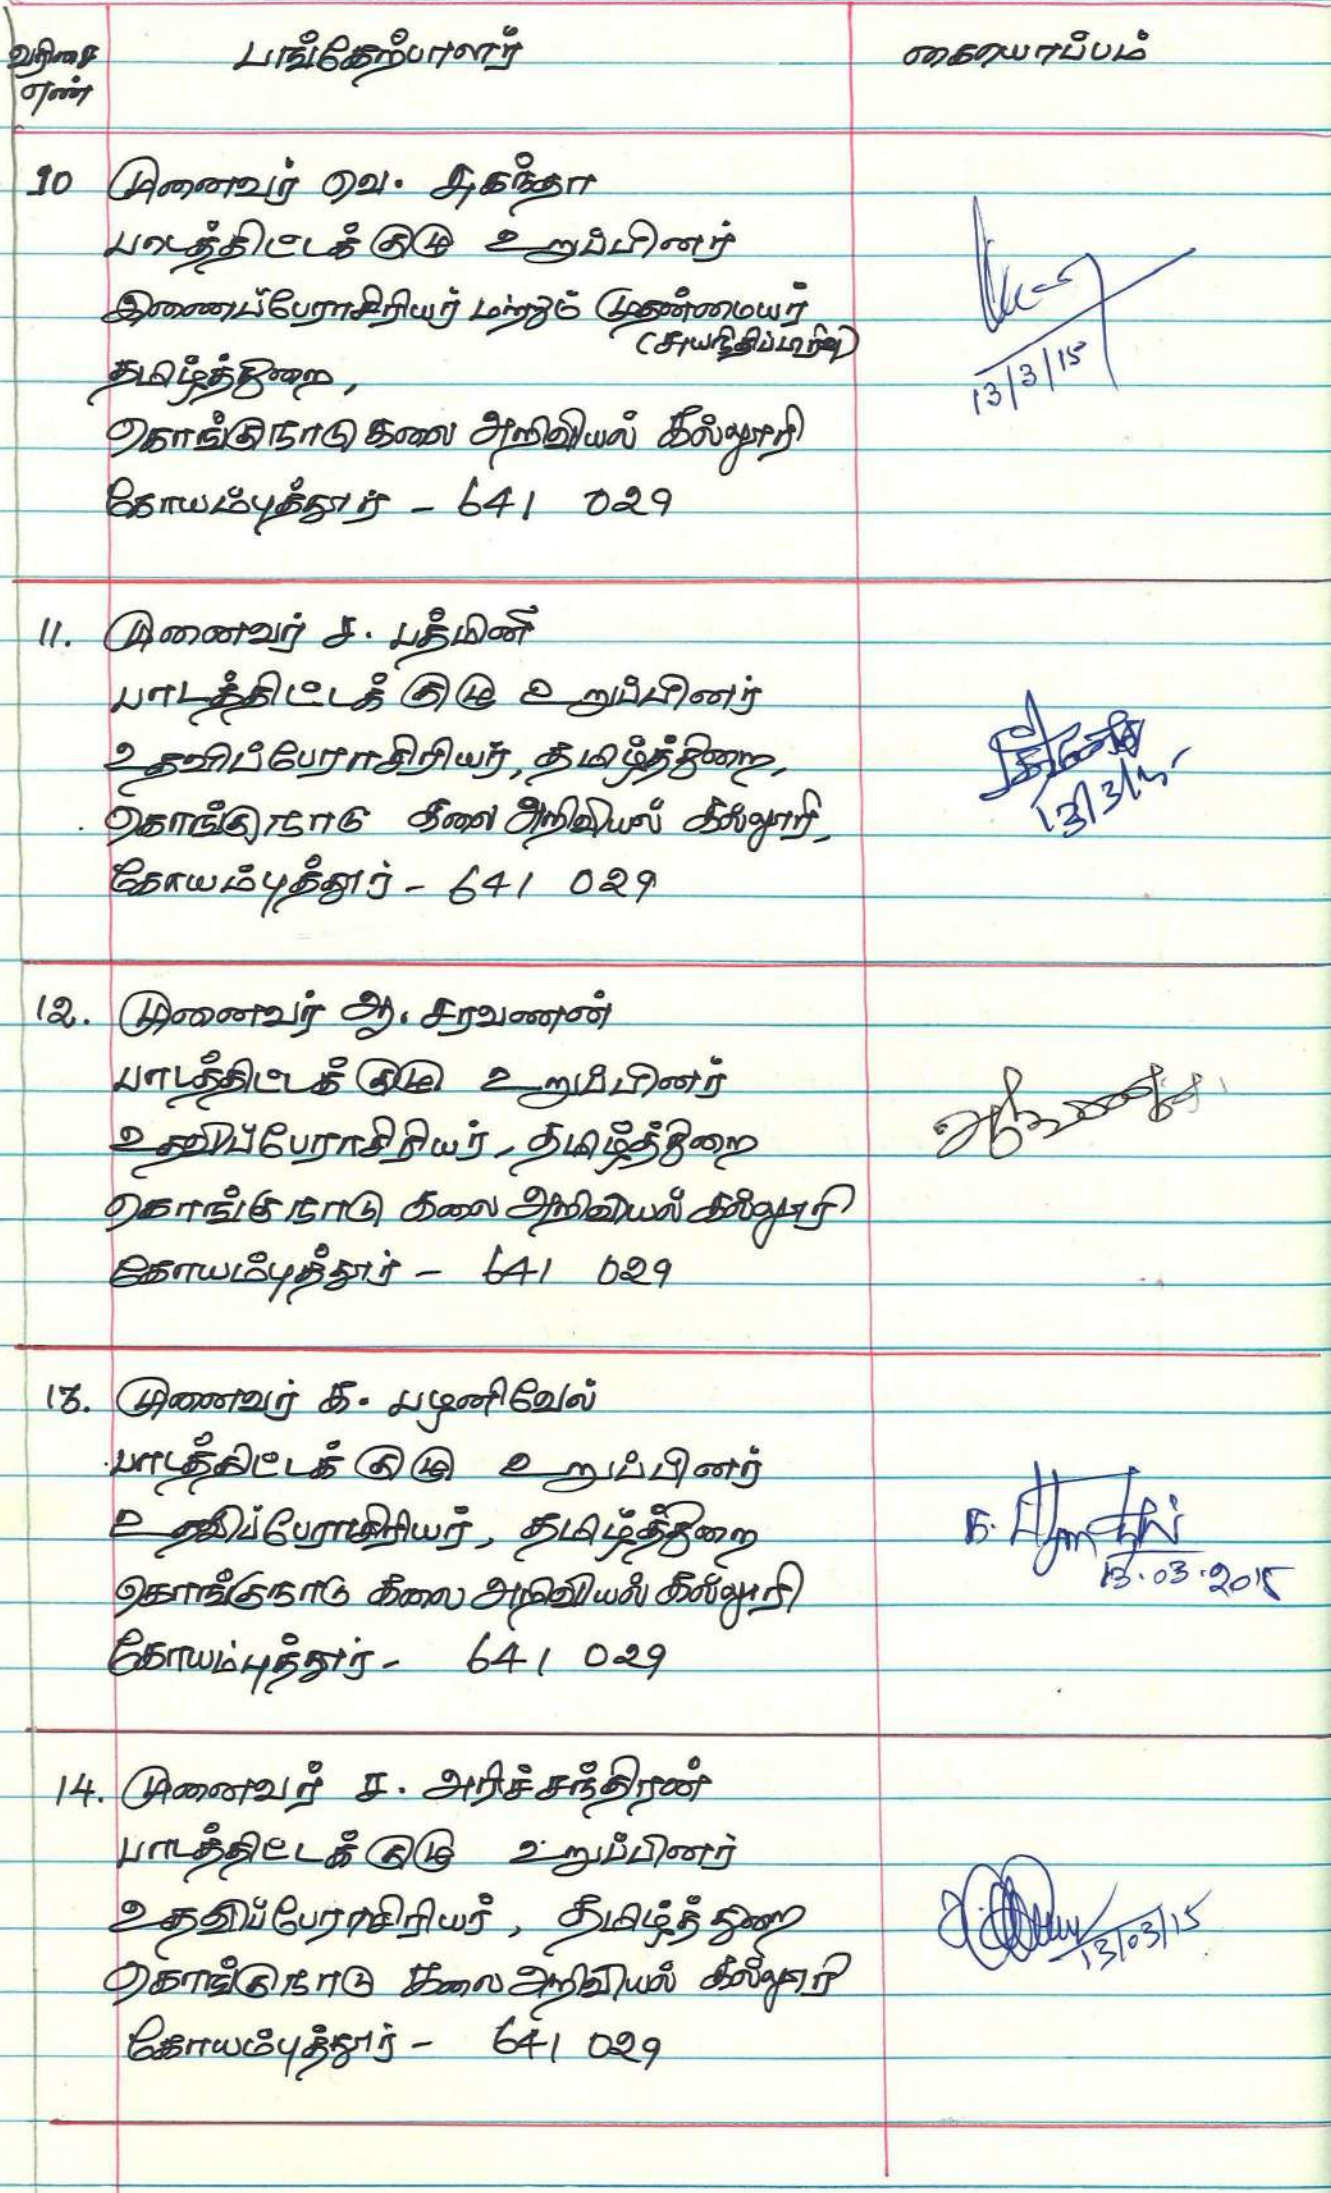 வரிசை எண் பங்கேற்பாளர் கையொப்பம்
10 முனைவர் வெ. சுகந்தா
பாடத்திட்டக் குழு உறுப்பினர்
இணைப்பேராசிரியர் மற்றும் முதன்மையர்
(சுயநிதிப்பிரிவு)
தமிழ்த்துறை,
கொங்குநாடு கலை அறிவியல் கல்லூரி
கோயம்புத்தூர் - 641 029
13/3/15
11. முனைவர் ச. பத்மினி
பாடத்திட்டக் குழு உறுப்பினர்
உதவிப்பேராசிரியர், தமிழ்த்துறை,
கொங்குநாடு கலை அறிவியல் கல்லூரி,
கோயம்புத்தூர் - 641 029
13/3/15
12. முனைவர் ஆ. சரவணன்
பாடத்திட்டக் குழு உறுப்பினர்
உதவிப்பேராசிரியர், தமிழ்த்துறை
கொங்குநாடு கலை அறிவியல் கல்லூரி
கோயம்புத்தூர் - 641 029
13. முனைவர் க. பழனிவேல்
பாடத்திட்டக் குழு உறுப்பினர்
உதவிப்பேராசிரியர், தமிழ்த்துறை
கொங்குநாடு கலை அறிவியல் கல்லூரி
கோயம்புத்தூர் - 641 029
13.03.2015
14. முனைவர் ச. அரிச்சந்திரன்
பாடத்திட்டக் குழு உறுப்பினர்
உதவிப்பேராசிரியர், தமிழ்த்துறை
கொங்குநாடு கலை அறிவியல் கல்லூரி
கோயம்புத்தூர் - 641 029
13/03/15